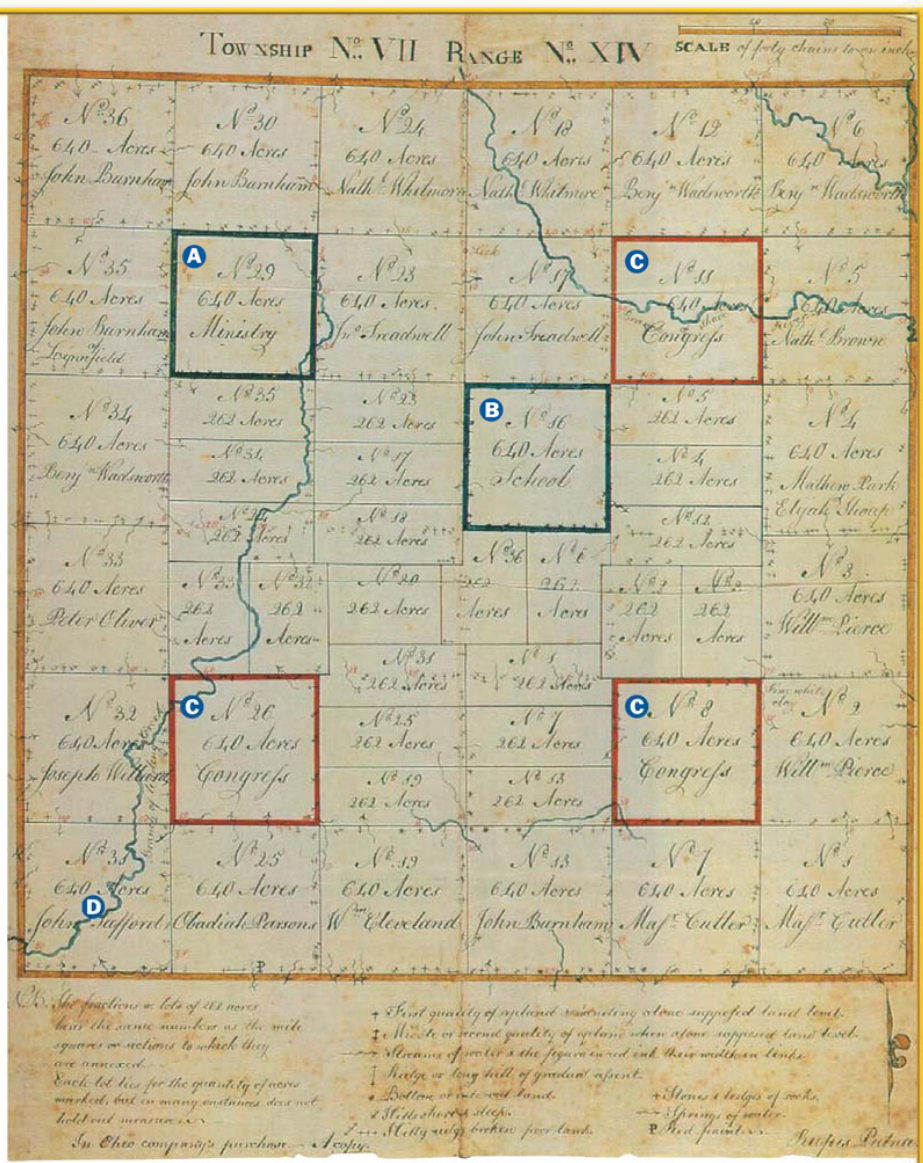 TOWNSHIP No. VII RANGE No. XIV
SCALE of forty chains to an inch
No 36
640 Acres
John Burnham
No 30
640 Acres
John Burnham
No 24
640 Acres
Nathl Whitmore
No 18
640 Acres
Nathl Whitmore
No 12
640 Acres
Benjn Wadsworth
No 6
640 Acres
Benjn Wadsworth
No 35
640 Acres
John Burnham
of
Lynnfield
A
No 29
640 Acres
Ministry
No 23
640 Acres
Jno Treadwell
Lick
No 17
640 Acres
John Treadwell
C
No 11
640 Acres
Congress
No 5
640 Acres
Nathl Brown
No 34
640 Acres
Benjn Wadsworth
No 35
262 Acres
No 34
262 Acres
No 24
262 Acres
No 23
262 Acres
No 17
262 Acres
No 18
262 Acres
B
No 16
640 Acres
School
No 5
262 Acres
No 4
262 Acres
No 12
262 Acres
No 4
640 Acres
Mathew Park
Elijah
No 33
640 Acres
Peter Oliver
No 33
262
Acres
262
Acres
No 20
262 Acres
No 36
262
Acres
No 6
262
Acres
No 2
262
Acres
262
Acres
No 3
640 Acres
Willm Pierce
No 31
262 Acres
No 1
262 Acres
No 32
640 Acres
Joseph
C
No 26
640 Acres
Congress
No 25
262 Acres
No 19
262 Acres
No 7
262 Acres
No 13
262 Acres
C
No 8
640 Acres
Congress
Fine white
clay
No 2
640 Acres
Willm Pierce
No 31
640 Acres
D
John Safford
No 25
640 Acres
Obadiah Parsons
No 19
640 Acres
Wm Cleveland
No 13
640 Acres
John Burnham
No 7
640 Acres
Massr Cutler
No 1
640 Acres
Massr Cutler
P
NB. The fractions or lots of 262 acres
bear the same numbers as the mile
squares or sections to which they
are annexed
Each lot lies for the quantity of acres
marked, but in many instances does not
hold out measure
In Ohio company's purchase. A copy.
First quality of upland standing alone supposed land level.
Middle or second quality of upland when alone supposed land level.
Streams of water & the figures in red ink their width in links.
Ridge or long hill of gradual ascent.
Bottom or land.
Hills short & steep.
Hilly ridgy broken poor land.
Stones & ledges of rocks.
Springs of water.
P Red paint
Rufus Putnam